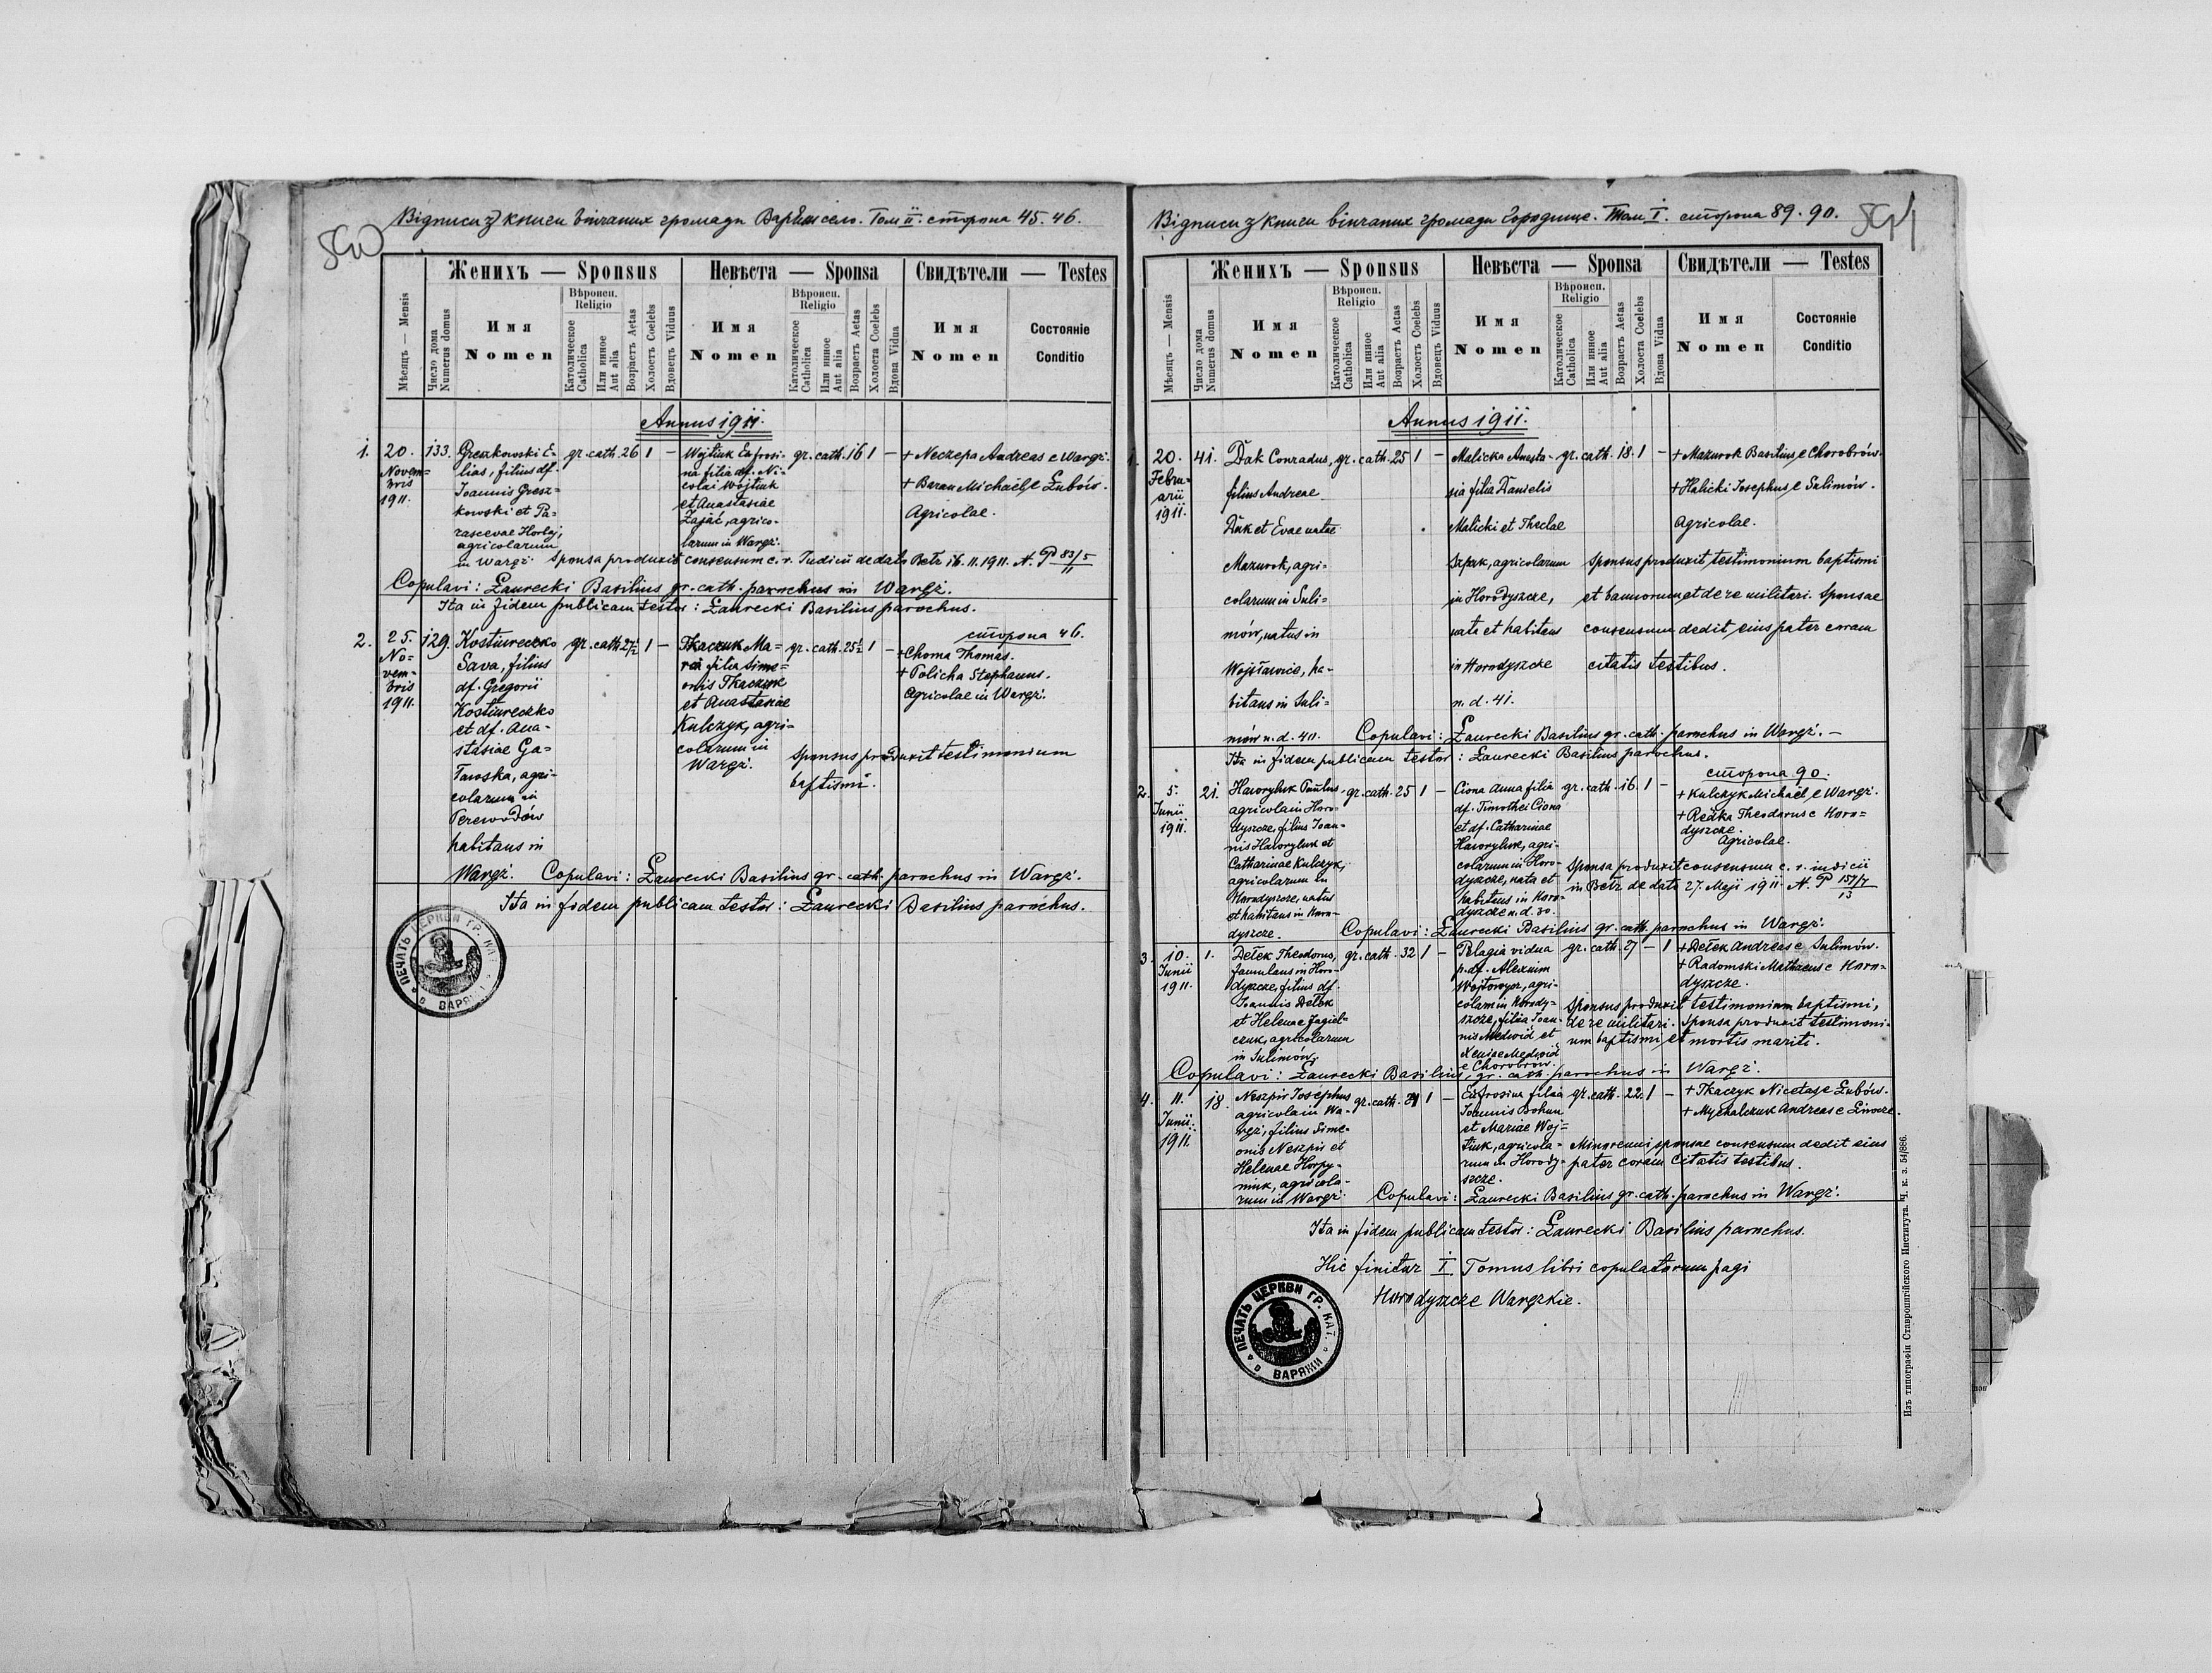 Відписи з книги вінчаних громади Варяж село. Том II. сторона 45. 46.
Женихъ — Sponsus
Невѣста — Sponsa
Свидѣтели — Testes
Мѣсяцъ — Mensis
Число дома
Numerus domus
Имя
Nomen
Вѣроисп.
Religio
Католическое
Catholica
Или инное
Aut alia
Возрастъ Aetas
Холостъ Coelebs
Вдовецъ Viduus
Имя
Nomen
Вѣроисп.
Religio
Католическое
Catholica
Или инное
Aut alia
Возрастъ Aetas
Холоста Coelebs
Вдова Vidua
Имя
Nomen
Состояніе
Conditio
Annus 1911.
1.
20.
Novem=
bris
1911.
133.
Greszkowski E-
lias, filius df.
Joannis Gresz=
kowski et Pa-
rascevae Horbaj,
agricolarum
in Waręż.
gr. cath. 26 1 —
Wojtiuk Eufrosi-
na filia df. Ni-
colai Wojtiuk
et Anastasiae
Zając, agrico-
larum in Waręż.
gr. cath. 16 1 —
+ Neczepa Andreas e Waręż.
+ Baran Michaël e Łubów.
Agricolae.
Sponsa produxit consensum c. r. Judicii de dato Betz 16. 11. 1911. N. P 83/5
11
Copulavi: Ławrecki Basilius gr. cath. parochus in Waręż.
Ita in fidem publicam testor: Ławrecki Basilius parochus.
2.
25.
No-
vem-
bris
1911.
129.
Kostiureczko
Sava, filius
df. Gregorii
Kostiureczko
et df. Ana-
stasiae Ga-
Tawska, agri-
colarum in
Perewodów
habitans in
Waręż.
gr. cath. 27½ 1 —
Tkaczuk Ma=
ria filia Sime=
onis Tkaczuk
et Anastasiae
Kulczyk, agri=
colarum in
Waręż.
gr. cath. 25½ 1 —
сторона 46.
+ Choma Thomas.
+ Policha Stephanus.
Agricolae in Waręż.
Sponsus produxit testimonium
baptismi.
Copulavi: Ławrecki Basilius gr. cath. parochus in Waręż.
Ita in fidem publicam testor: Ławrecki Basilius parochus.
ПЕЧАТЬ ЦЕРКВИ ГР. КАТ.
В ВАРЯЖИ
Відписи з книги вінчаних громади Городище. Том I. сторона 89. 90.
Женихъ — Sponsus
Невѣста — Sponsa
Свидѣтели — Testes
Мѣсяцъ — Mensis
Число дома
Numerus domus
Имя
Nomen
Вѣроисп.
Religio
Католическое
Catholica
Или инное
Aut alia
Возрастъ Aetas
Холостъ Coelebs
Вдовецъ Viduus
Имя
Nomen
Вѣроисп.
Religio
Католическое
Catholica
Или инное
Aut alia
Возрастъ Aetas
Холоста Coelebs
Вдова Vidua
Имя
Nomen
Состояніе
Conditio
Annus 1911.
1.
20.
Febru=
arii
1911.
41.
Dak Conradus,
filius Andreae
Dak et Evae natae
Mazurok, agri-
colarum in Suli=
mów, natus in
Wojsławice, ha-
bitans in Suli=
mów n. d. 40.
gr. cath. 25 1 —
Malicka Anasta-
sia filia Danielis
Malicki et Theclae
Szpak, agricolarum
in Horodyszcze,
nata et habitans
in Horodyszcze
n. d. 41.
gr. cath. 18 1 —
+ Mazurok Basilius, e Chorobrów.
+ Halicki Josephus, e Sulimów.
Agricolae.
Sponsus produxit testimonium baptismi
et bannorum et de re militari. Sponsae
consensum dedit eius pater coram
citatis testibus.
Copulavi: Ławrecki Basilius gr. cath. parochus in Waręż. —
Ita in fidem publicam testor: Ławrecki Basilius parochus.
2.
5.
Junii
1911.
21.
Haworyluk Paulus,
agricola in Horo=
dyszcze, filius Joan=
nis Haworyluk et
Catharinae Kulczyk,
agricolarum in
Horodyszcze, natus
et habitans in Horo=
dyszcze.
gr. cath. 25 1 —
Ciona Anna filia
df. Timothei Ciona
et df. Catharinae
Haworyluk, agri-
colarum in Horo-
dyszcze, nata et
habitans in Horo=
dyszcze n. d. 30.
gr. cath. 16 1 —
сторона 90.
+ Kulczyk Michaël, e Waręż.
+ Redka Theodorus e Horo=
dyszcze.
Agricolae.
Sponsa produxit consensum c. r. iudicii
in Betz de dato 27. Maji 1911. N. P 157/7
13
Copulavi: Ławrecki Basilius gr. cath. parochus in Waręż.
3.
10.
Junii
1911.
1.
Detek Theodorus,
famulans in Horo-
dyszcze, filius df.
Joannis Detek
et Helenae Jagiel=
czuk, agricolarum
in Sulimów.
gr. cath. 32 1 —
Pelagia vidua
p. df. Alexium
Wojtowycz, agri-
colam in Horody=
szcze, filia Joan-
nis Medwid et
Xeniae Medwid
e Chorobrów.
gr. cath. 27 — 1
+ Detek Andreas e Sulimów.
+ Radomski Mathaeus e Horo=
dyszcze.
Sponsus produxit testimonium baptismi,
de re militari. Sponsa produxit testimoni-
um baptismi et mortis mariti.
Copulavi: Ławrecki Basilius, gr. cath. parochus in Waręż.
4.
11.
Junii
1911
18.
Neszpir Josephus
agricola in Wa-
ręż, filius Sime=
onis Neszpir et
Helenae Horpy-
niuk, agricola-
rum in Waręż.
gr. cath. 1 —
Eufrosina filia
Joannis Bohun
et Mariae Woj=
tiuk, agricola-
rum in Horody=
szcze.
gr. cath. 22 1 —
+ Tkaczyk Nicetas, e Łubów.
+ Mychalczuk Andreas e Liwcze.
Minorenni sponsae consensum dedit eius
pater coram citatis testibus.
Copulavi: Ławrecki Basilius gr. cath. parochus in Waręż.
Ita in fidem publicam testor: Ławrecki Basilius parochus.
Hic finitur I Tomus libri copulatorum pagi
Horodyszcze Waręzkie.
ПЕЧАТЬ ЦЕРКВИ ГР. КАТ.
В ВАРЯЖИ
Изъ типографіи Ставропигійского Института. Ч. к. з. 54/886.